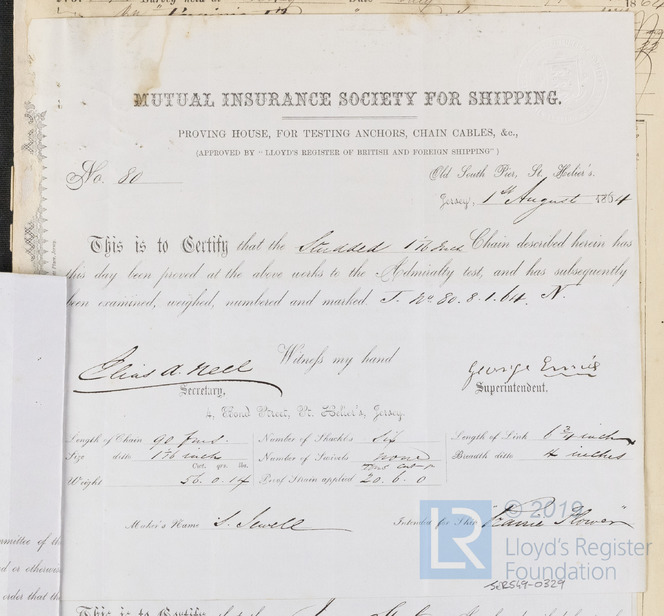 Survey held at
Date
186
MUTUAL INSURANCE SOCIETY FOR SHIPPING.
PROVING HOUSE, FOR TESTING ANCHORS, CHAIN CABLES, &c.,
(APPROVED BY "LLOYD'S REGISTER OF BRITISH AND FOREIGN SHIPPING")
No. 80
Old South Pier, St. Helier's.
Jersey, 1st August 1864
This is to Certify that the Studded 1 1/16 Inch Chain described herein has
this day been proved at the above works to the Admiralty test, and has subsequently
been examined, weighed, numbered and marked J. No 80. 8. 1. 64. N.
Witness my hand
Elias A. Neel
George Ennis
Secretary,
Superintendent.
4, Bond Street, St. Helier's, Jersey.
Length of Chain 90 fms. Number of Shackles Six Length of Link 6 3/4 inch
Size ditto 1 1/16 inch Number of Swivels none Breadth ditto 4 inches
Cwt. qrs. lbs. Tons Cwt
Weight 56.0.14 Proof Strain applied 20.6.0
Maker's Name S. Sewell Intended for Ship "Flower"
© 2019
LR
Lloyd's Register
Foundation
mmittee of th
d or otherwise
order that the
This is to Certify